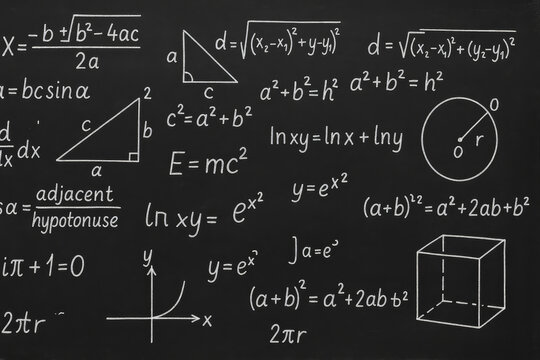 X = (-b ±√b²-4ac) / 2a
a
c
d = √(x₂-x₁)²+y-y₁)²
d = √(x₂-x₁)²+(y₂-y₁)²
a = bc sin a
a²+b²=h²
a²+b²=h²
c
2
b
a
c²=a²+b²
ln xy = ln x + ln y
0
r
0
d/dx dx
E=mc²
sa = adjacent / hypotonuse
ln xy =
eˣ²
y=eˣ²
(a+b)²²=a²+2ab+b²
iπ+1=0
y
x
y=eˣ
a=e
(a+b)²=a²+2ab+b²
2πr
2πr